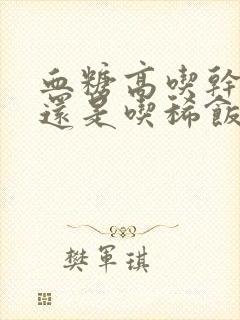 血糖高喫幹
還是喫稀飯
樊軍琪